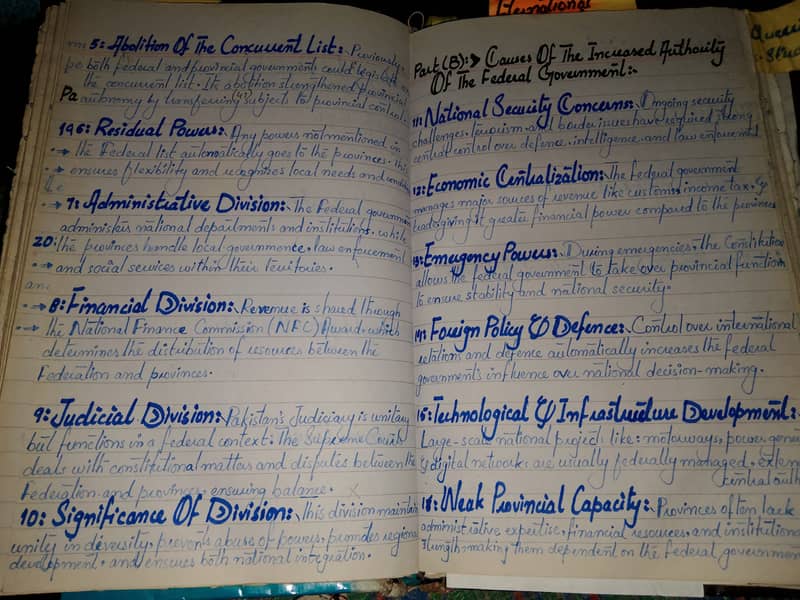 5: Abolition Of The Concurrent List: Previously,
both federal and provincial governments could legislate on
the concurrent list. Its abolition strengthened provincial
Pa autonomy by transferring subjects to provincial control.
196: Residual Powers: Any powers not mentioned in
the Federal list automatically goes to the provinces. this
ensures flexibility and recognizes local needs and
7: Administrative Division: The Federal government
administers national departments and institutions, while
20: the provinces handle local governance, law enforcement
and social services within their territories.
an:
8: Financial Division: Revenue is shared through
the National Finance Commission (NFC) Award, which
determines the distribution of resources between the
Federation and provinces.
9: Judicial Division: Pakistan's Judiciary is unitary
but functions in a federal context: the Supreme Court
deals with constitutional matters and disputes between the
Federation and provinces, ensuring balance.
10: Significance Of Division: this division maintain
unity in diversity, prevents abuse of powers, promotes regional
development, and ensures both national integration.
Eternational
Part (B): Causes Of The Increased Authority
Of The Federal Government:
11: National Security Concerns: Ongoing security
challenges, terrorism, and border issues have required strong
central control over defence, intelligence, and law enforcement
12: Economic Centralization: The Federal government
manages major sources of revenue like customs, income tax, &
trade giving it greater financial power compared to the provinces
13: Emergency Powers: During emergencies, the Constitution
allows the federal government to take over provincial function
to ensure stability and national security.
14: Foreign Policy & Defence: Control over international
relations and defence automatically increases the federal
government's influence over national decision-making.
15: Technological & Infrastructure Development:
Large-scale national projects like: motorways, power gener
& digital networks are usually federally managed, exten
central auth
16: Weak Provincial Capacity: Provinces often lack
administrative expertise, financial resources, and institutional
strength making them dependent on the federal government